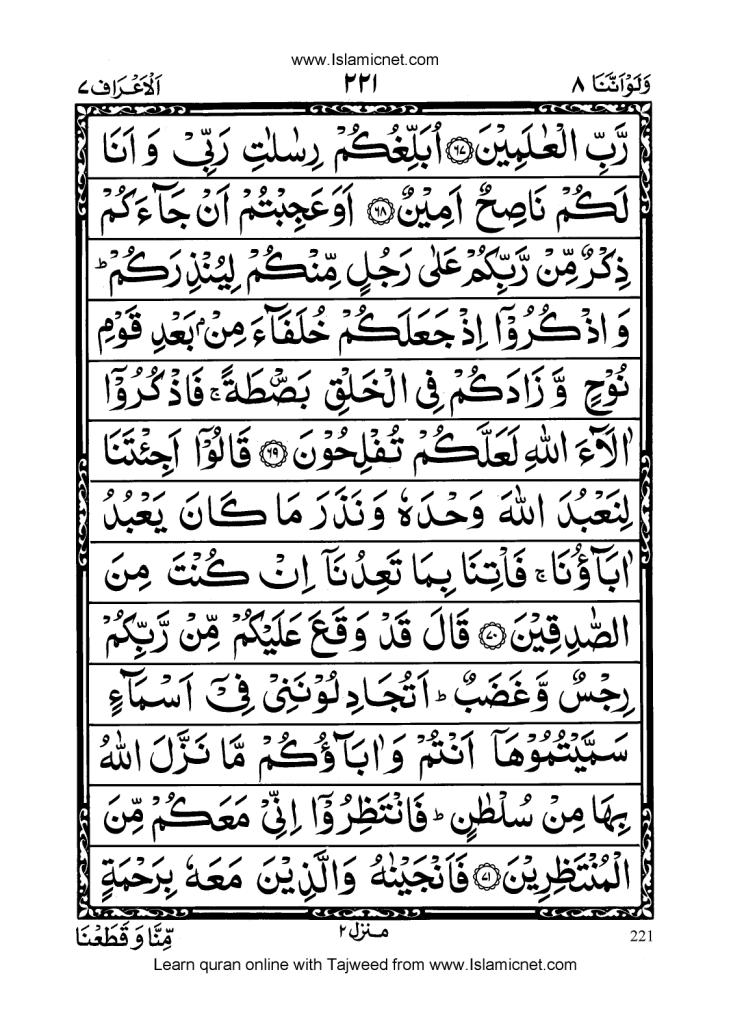 www.Islamicnet.com
وَلَوْاَنَّنَا ٨ ٢٢١ اَلْاَعْرَاف ٧
رَّبِّ الْعٰلَمِيْنَ ۝٦٧ اُبَلِّغُكُمْ رِسٰلٰتِ رَبِّيْ وَ اَنَا
لَكُمْ نَاصِحٌ اَمِيْنٌ ۝٦٨ اَوَعَجِبْتُمْ اَنْ جَآءَكُمْ
ذِكْرٌ مِّنْ رَّبِّكُمْ عَلٰى رَجُلٍ مِّنْكُمْ لِيُنْذِرَكُمْ ؕ
وَ اذْكُرُوْٓا اِذْ جَعَلَكُمْ خُلَفَآءَ مِنْۢ بَعْدِ قَوْمِ
نُوْحٍ وَّ زَادَكُمْ فِى الْخَلْقِ بَصْۜطَةً ۚ فَاذْكُرُوْٓا
اٰلَآءَ اللّٰهِ لَعَلَّكُمْ تُفْلِحُوْنَ ۝٦٩ قَالُوْٓا اَجِئْتَنَا
لِنَعْبُدَ اللّٰهَ وَحْدَهٗ وَ نَذَرَ مَا كَانَ يَعْبُدُ
اٰبَآؤُنَا ۚ فَاْتِنَا بِمَا تَعِدُنَآ اِنْ كُنْتَ مِنَ
الصّٰدِقِيْنَ ۝٧٠ قَالَ قَدْ وَقَعَ عَلَيْكُمْ مِّنْ رَّبِّكُمْ
رِجْسٌ وَّ غَضَبٌ ؕ اَتُجَادِلُوْنَنِيْ فِيْٓ اَسْمَآءٍ
سَمَّيْتُمُوْهَآ اَنْتُمْ وَ اٰبَآؤُكُمْ مَّا نَزَّلَ اللّٰهُ
بِهَا مِنْ سُلْطٰنٍ ؕ فَانْتَظِرُوْٓا اِنِّيْ مَعَكُمْ مِّنَ
الْمُنْتَظِرِيْنَ ۝٧١ فَاَنْجَيْنٰهُ وَالَّذِيْنَ مَعَهٗ بِرَحْمَةٍ
مِّنَّا وَ قَطَعْنَا منزل ٢ 221
Learn quran online with Tajweed from www.Islamicnet.com